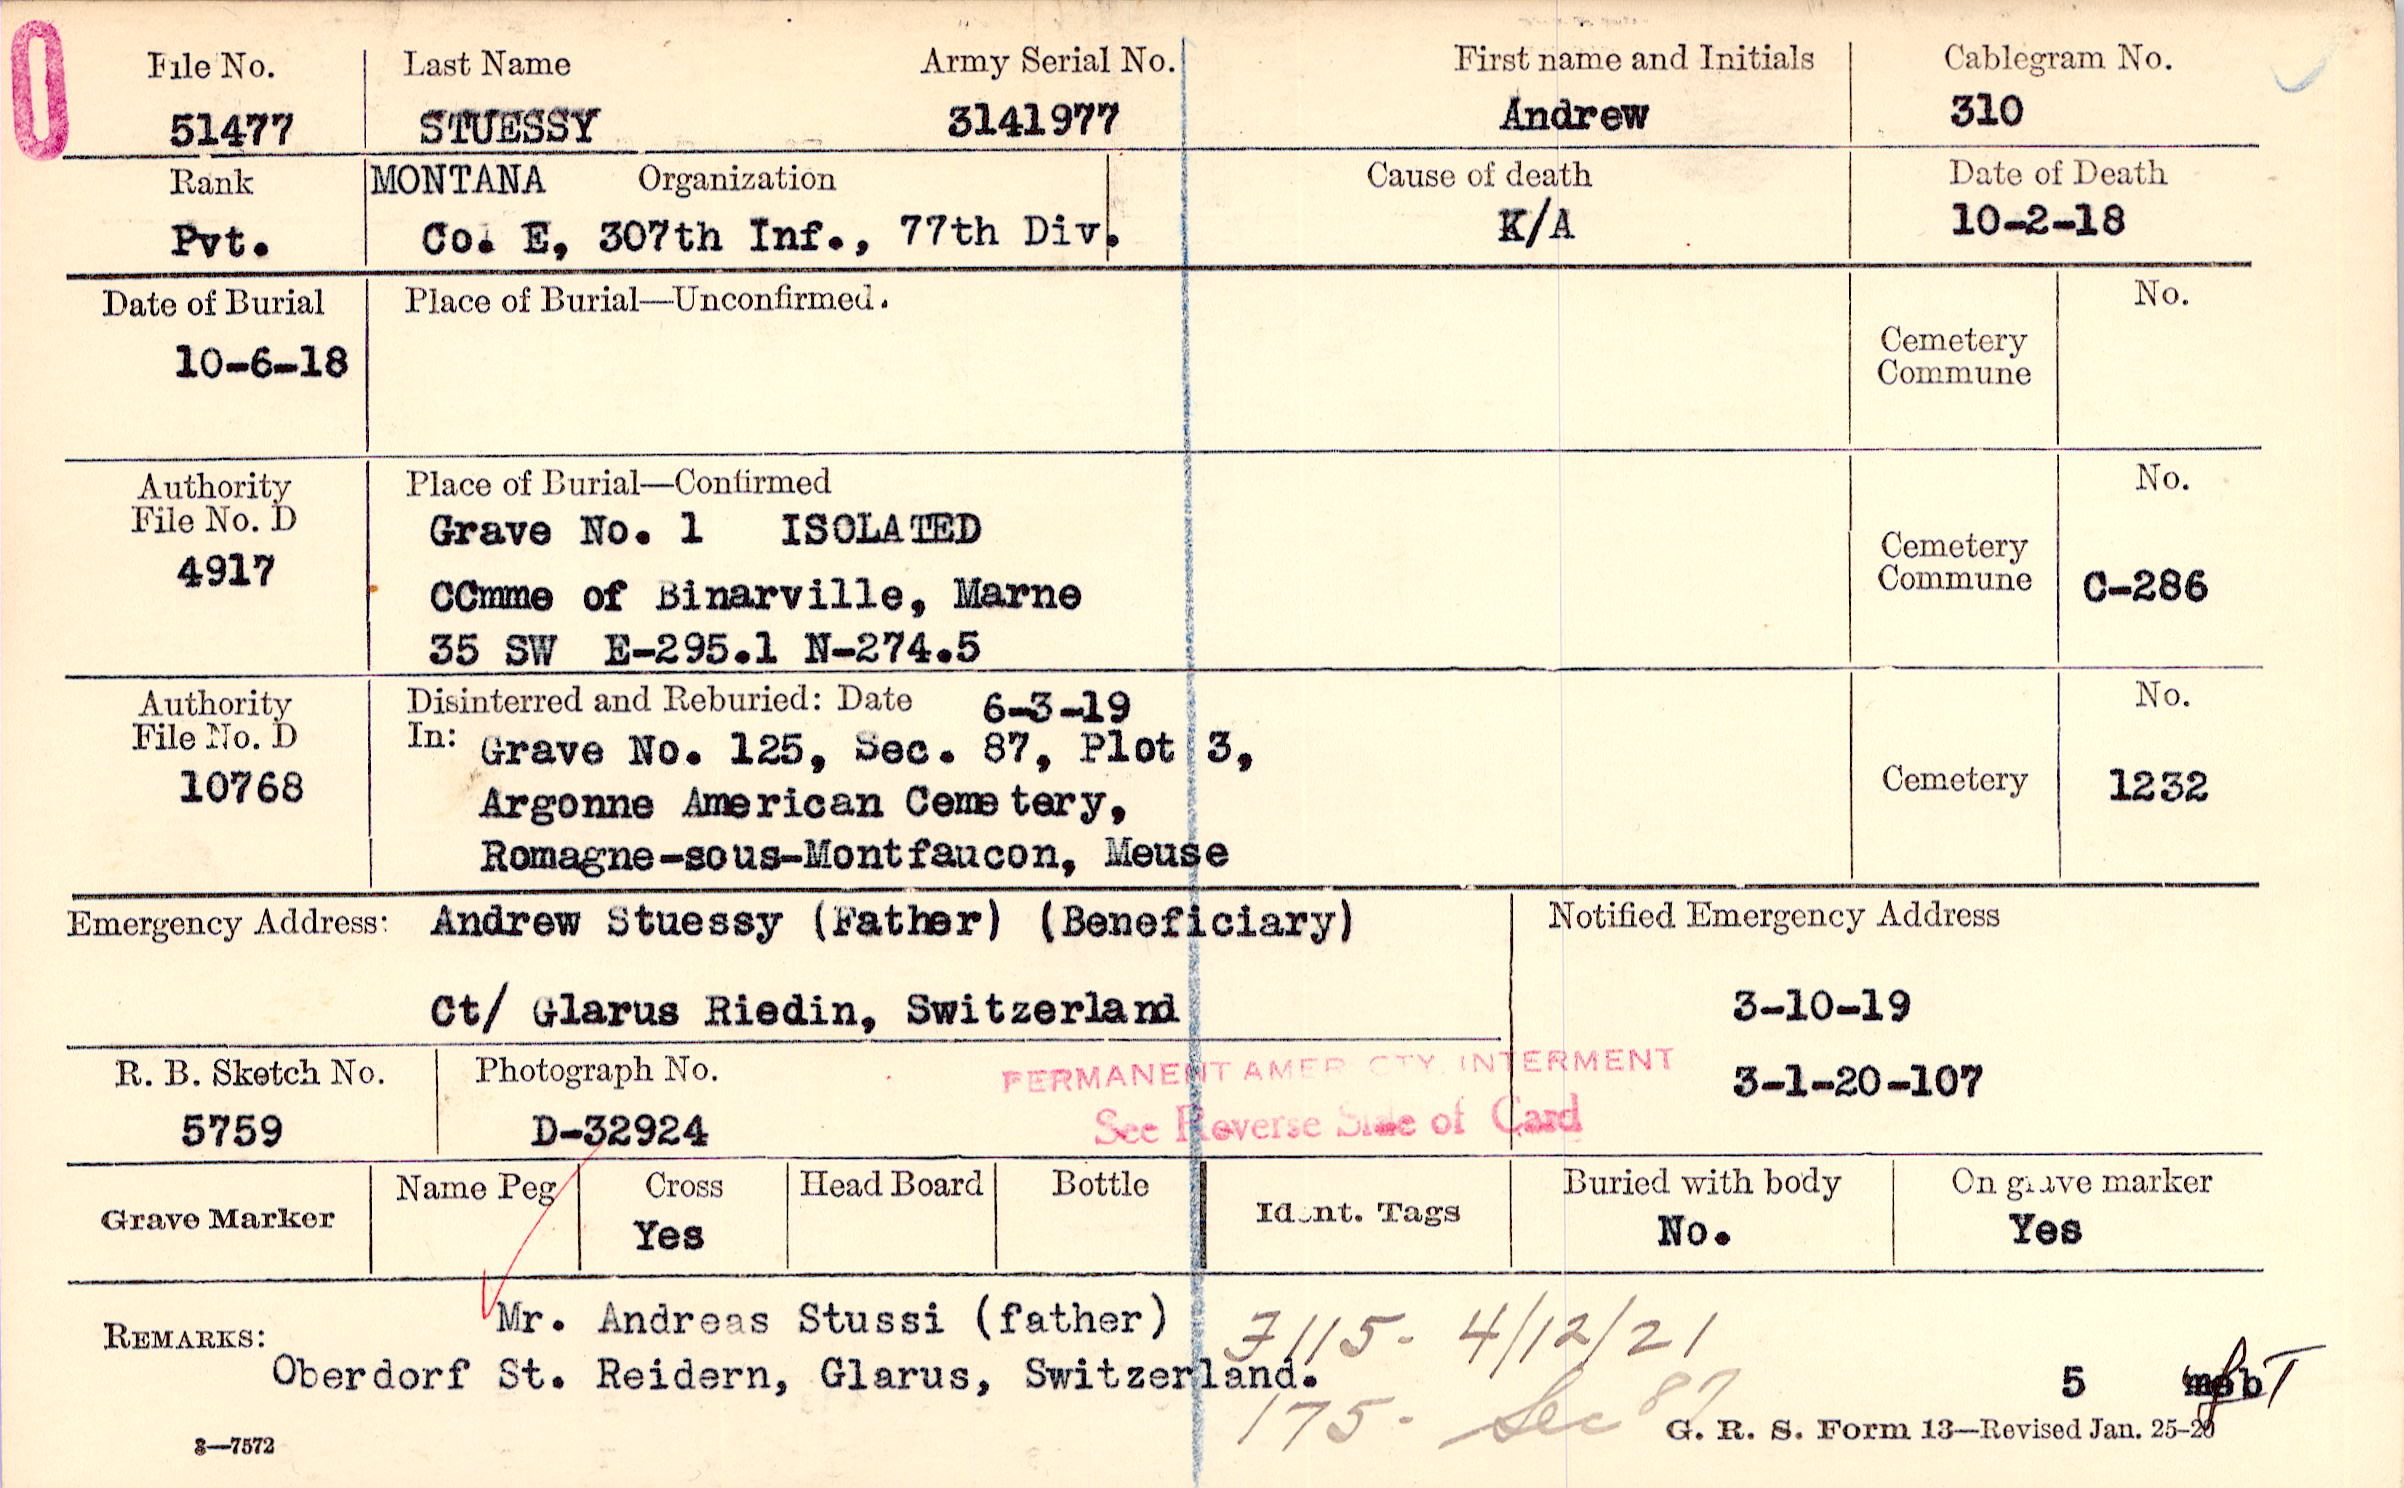 File No. Last Name Army Serial No. First name and Initials Cablegram No.
51477 STUESSY 3141977 Andrew 310
Rank MONTANA Organization Cause of death Date of Death
Pvt. Co. E, 307th Inf., 77th Div. K/A 10-2-18
Date of Burial Place of Burial—Unconfirmed. No.
10-6-18 Cemetery
Commune
Authority Place of Burial—Confirmed No.
File No. D Grave No. 1 ISOLATED
4917 CCmme of Binarville, Marne Cemetery
Commune C-286
35 SW E-295.1 N-274.5
Authority Disinterred and Reburied: Date 6-3-19 No.
File No. D In: Grave No. 125, Sec. 87, Plot 3,
10768 Argonne American Cemetery, Cemetery 1232
Romagne-sous-Montfaucon, Meuse
Emergency Address: Andrew Stuessy (Father) (Beneficiary) Notified Emergency Address
Ct/ Glarus Riedin, Switzerland 3-10-19
R. B. Sketch No. Photograph No. PERMANENT AMER CTY. INTERMENT 3-1-20-107
5759 D-32924 See Reverse Side of Card
Grave Marker Name Peg Cross Head Board Bottle Ident. Tags Buried with body On grave marker
Yes No. Yes
REMARKS: Mr. Andreas Stussi (father) 115- 4/12/21
Oberdorf St. Reidern, Glarus, Switzerland. 5
175- Sec 87
3—7572 G. R. S. Form 13—Revised Jan. 25-20